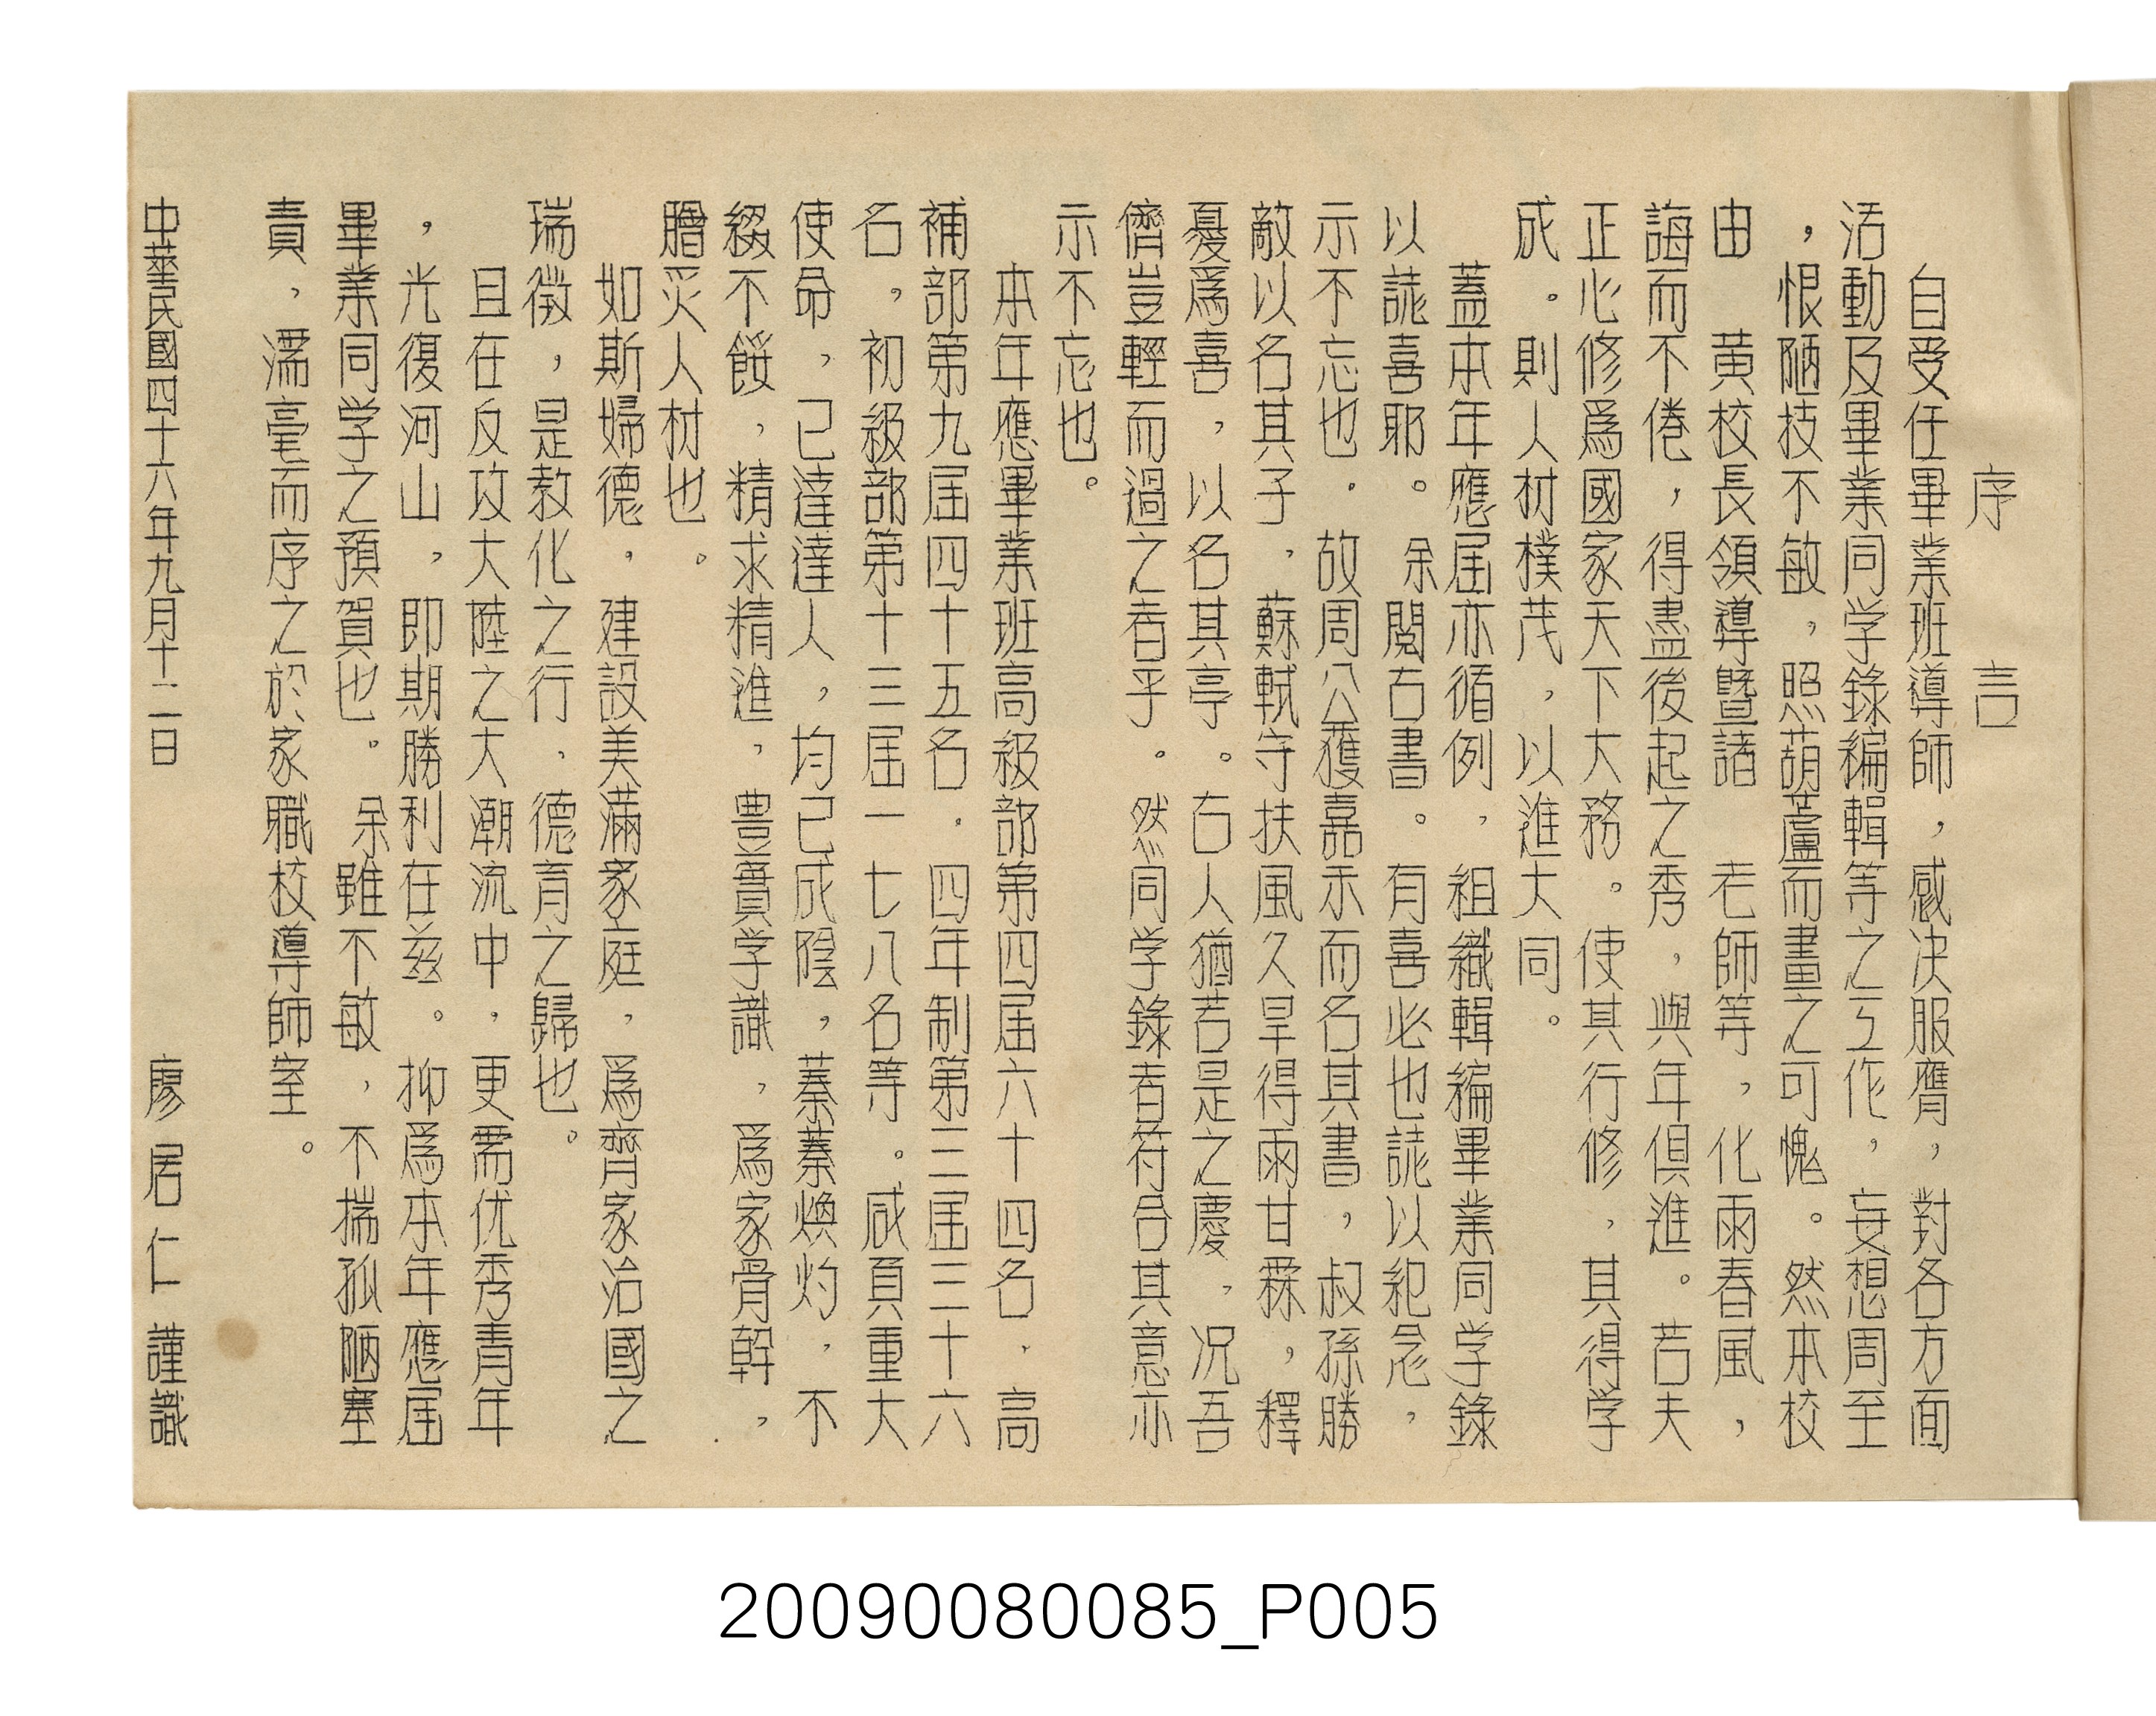 序言
自受任畢業班導師，感决服膺，對各方面
活動及畢業同学錄編輯等之工作，妄想周至
，恨陋技不敏，照葫蘆而畫之可愧。然本校
由　黃校長領導暨諸　老師等，化雨春風，
誨而不倦，得盡後起之秀，與年俱進。若夫
正心修爲國家天下大務。使其行修，其得学
成。則人材樸茂，以進大同。
蓋本年應届亦循例，組織輯編畢業同学錄
以誌喜耶。余閱右書。有喜必也誌以犯念，
示不忘也．故周公獲嘉禾而名其書，叔孫勝
敵以名其子，蘇軾守扶風久旱得雨甘霖，釋
憂爲喜，以名其亭。右人猶若是之慶，况吾
儕豈輕而過之者乎。然同学錄者符合其意亦
示不忘也。
本年應畢業班高級部第四届六十四名，高
補部第九届四十五名．四年制第三届三十六
名，初級部第十三届一七八名等。咸負重大
使命，己達達人，均已成陰，蓁蓁煥灼，不
綴不餒，精求精進，豊實学識，爲家骨幹，
膪災人材也。
如斯婦德，建設美滿家庭，爲齊家治國之
瑞徵，是敎化之行，德育之歸也。
且在反攻大陸之大潮流中，更需优秀青年
，光復河山，即期勝利在兹。抑爲本年應届
畢業同学之預賀也。余雖不敏，不揣孤陋塞
責，濡毫而序之於家職校導師室。
中華民國四十六年九月十二日　廖居仁謹識
20090080085_P005